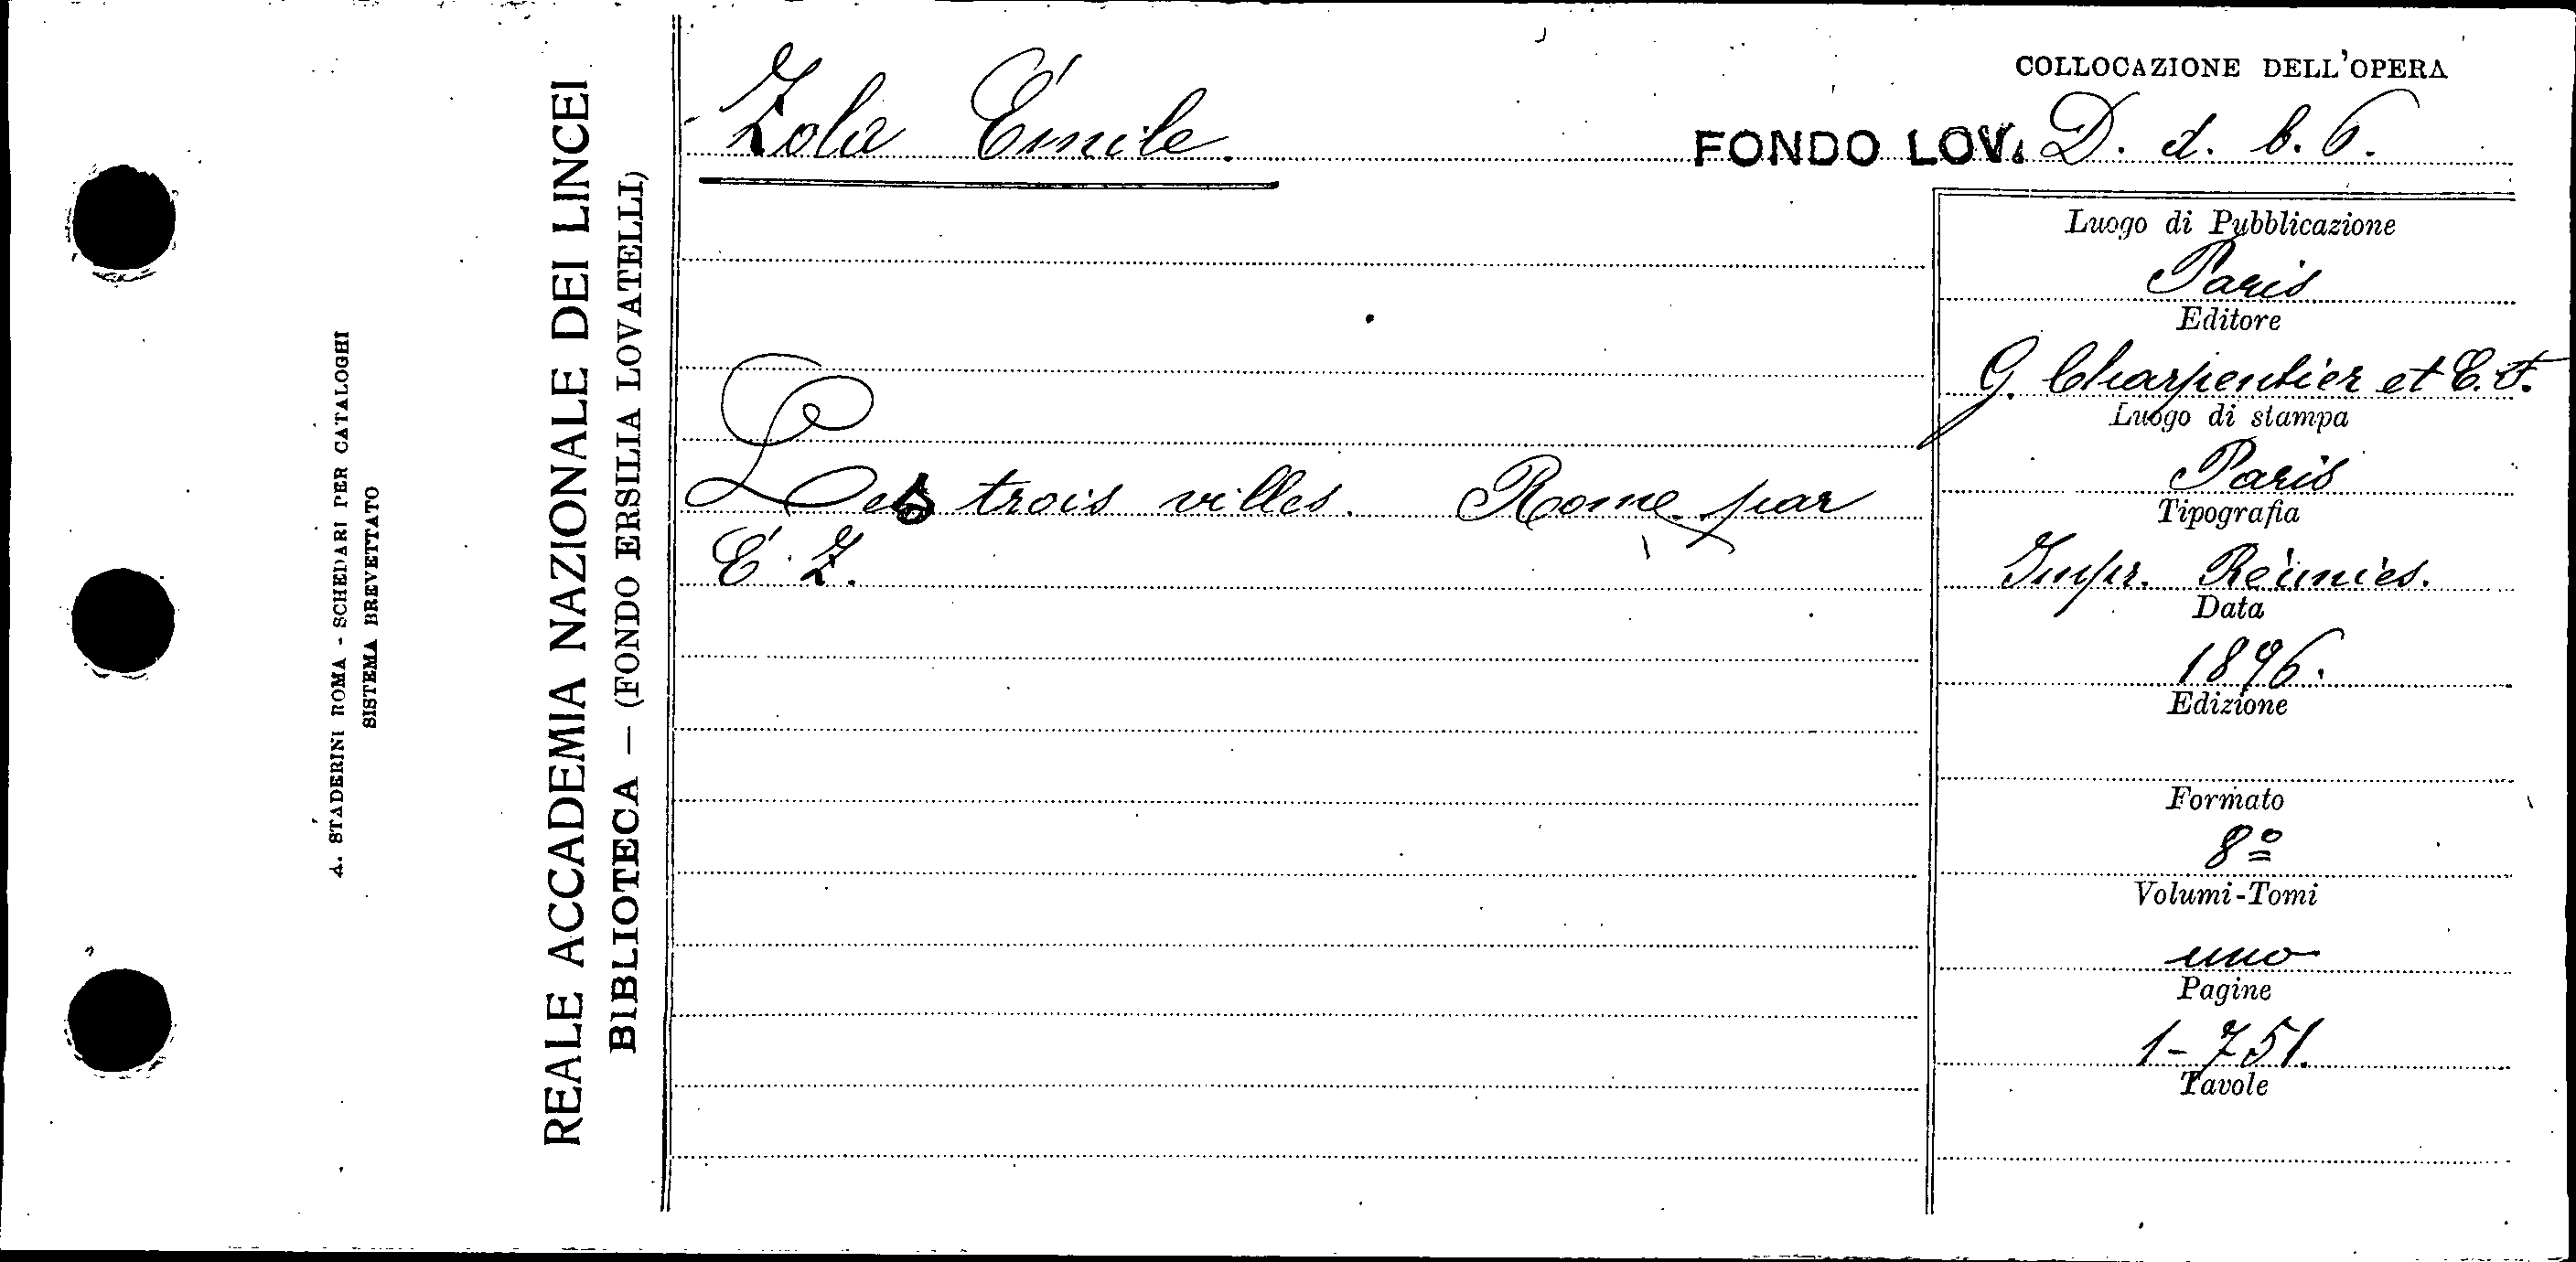 A. STADERINI ROMA - SCHEDARI PER CATALOGHI
SISTEMA BREVETTATO
REALE ACCADEMIA NAZIONALE DEI LINCEI
BIBLIOTECA — (FONDO ERSILIA LOVATELLI)
Zola Émile.
COLLOCAZIONE DELL'OPERA
FONDO LOV. D. d. b. 6.
Les trois villes. Rome par
É. Z.
Luogo di Pubblicazione
Paris
Editore
G. Charpentier et E. F.
Luogo di stampa
Paris
Tipografia
Impr. Réunies.
Data
1896.
Edizione
Formato
8º
Volumi-Tomi
uno
Pagine
1-751.
Tavole